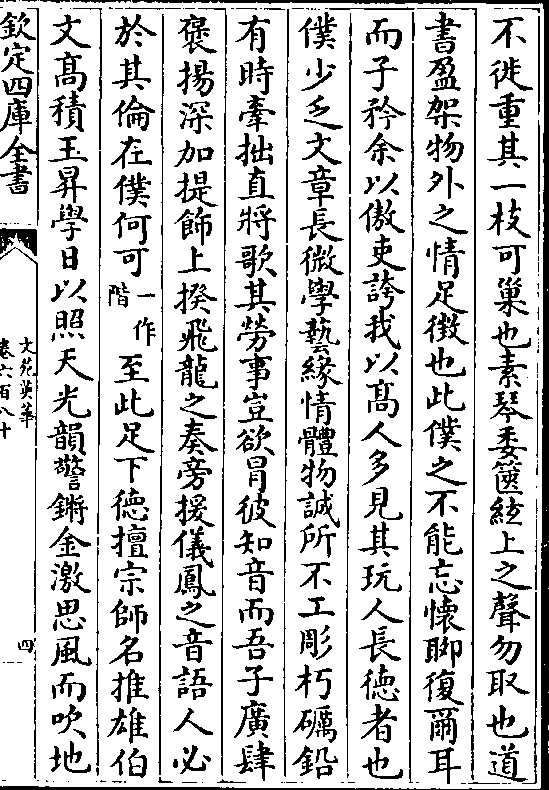 不徙重其一枝可巢也素琴委篋絃上之聲勿取也道
書盈架物外之情足徴也此僕之不能忘懷聊復爾耳
而子矜余以傲吏誇我以髙人多見其玩人長徳者也
僕少乏文章長微學藝緣情體物誠所不工彫朽礪鉛
有時牽拙直將歌其勞事豈欲冐彼知音而吾子廣肆
褒揚深加提飾上揆飛龍之奏旁援儀鳳之音語人必
於其倫在僕何可一作階至此足下徳擅宗師名推雄伯
文髙積玉昇學日以照天光韻警鏘金激思風而吹地
欽定四庫全書
文苑英華
卷六百八十
四